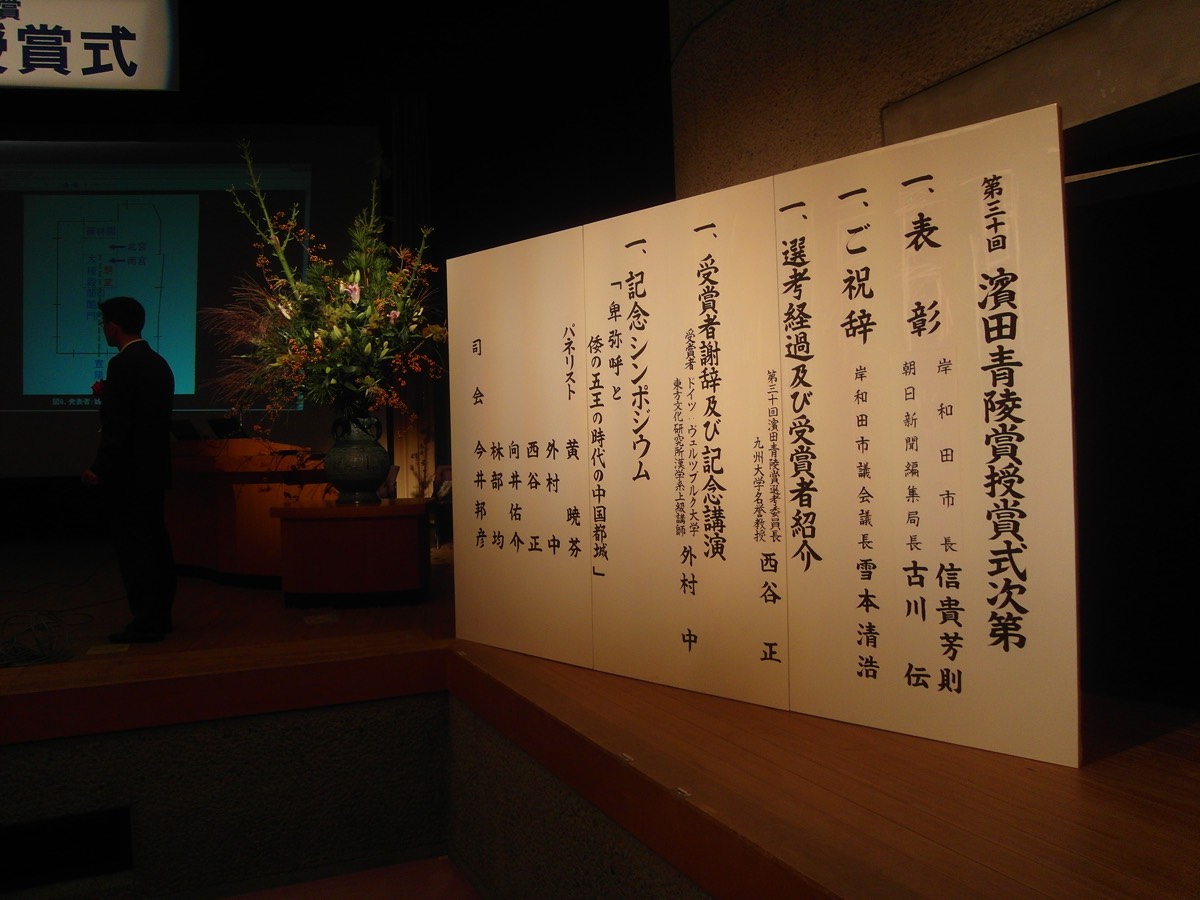 賞
授賞式
第三十回 濱田青陵賞授賞式次第
一、表彰 岸和田市長 信貴芳則
朝日新聞編集局長 古川 伝
一、ご祝辞 岸和田市議会議長 雪本清浩
一、選考経過及び受賞者紹介
第三十回濱田青陵賞選考委員長
九州大学名誉教授 西谷 正
一、受賞者謝辞及び記念講演
受賞者 ドイツ・ヴュルツブルク大学
東方文化研究所漢学系上級講師 外村 中
一、記念シンポジウム
「卑弥呼と
倭の五王の時代の中国都城」
パネリスト 黄 暁芬
外村 中
西谷 正
向井佑介
林部 均
司会 今井邦彦
北宮
南宮